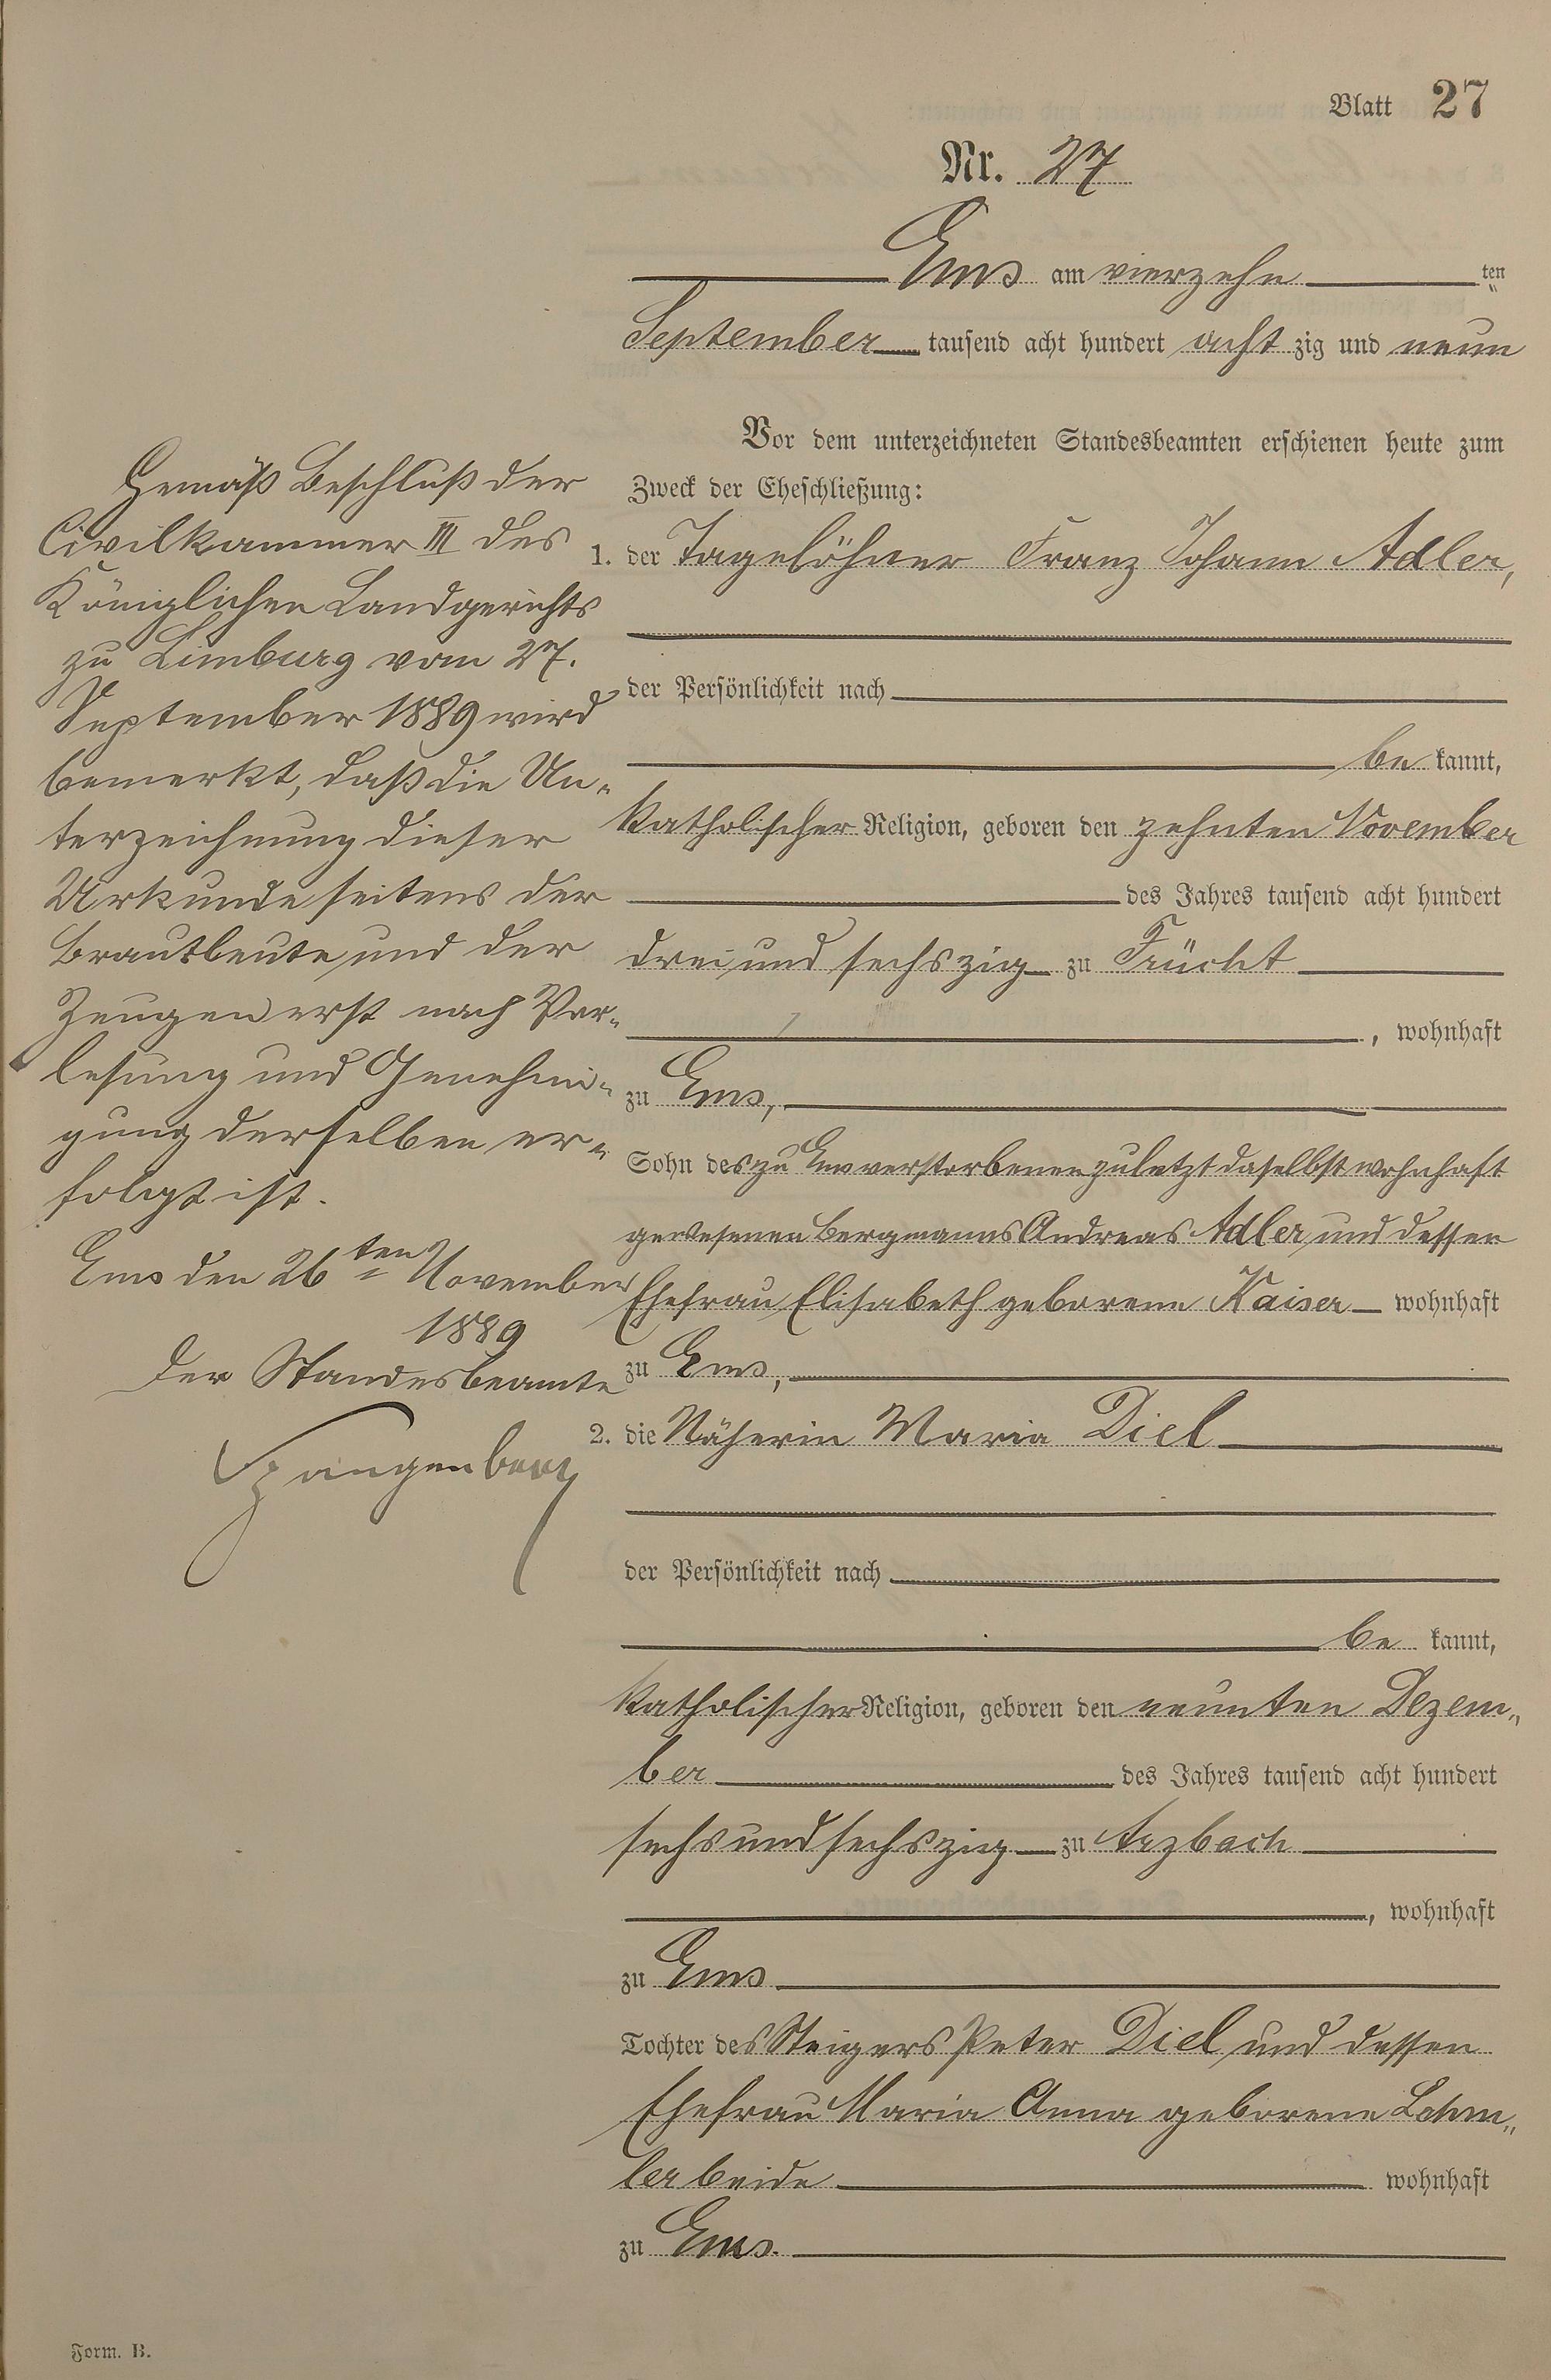 Blatt 27
Nr. 27
Ems am vierzehnten
September tausend acht hundert acht zig und neun
Vor dem unterzeichneten Standesbeamten erschienen heute zum
Zweck der Eheschließung:
1. der Tagelöhner Franz Johann Adler,
der Persönlichkeit nach
be kannt,
katholischer Religion, geboren den zehnten November
des Jahres tausend acht hundert
drei und sechszig zu Frücht
, wohnhaft
zu Ems,
Sohn des zu Ems verstorbenen zuletzt daselbst wohnhaft
gewesenen Bergmanns Andreas Adler und dessen
Ehefrau Elisabeth geborene Kaiser wohnhaft
zu Ems,
2. die Näherin Maria Diel
der Persönlichkeit nach
be kannt,
katholischer Religion, geboren den neunten Dezem„
ber des Jahres tausend acht hundert
sechs und sechszig zu Arzbach
, wohnhaft
zu Ems
Tochter des Steigers Peter Diel und dessen
Ehefrau Maria Anna geborene Lehm„
ler beide wohnhaft
zu Ems.
Gemäß Beschluß der
Civilkammer III des
Königlichen Landgerichts
zu Limburg vom 27.
September 1889 wird
bemerkt, daß die Un„
terzeichnung dieser
Urkunde seitens der
Brautleute und der
Zeugen erst nach Vor„
lesung und Genehmi„
gung derselben er„
folgt ist.
Ems den 26ten November
1889
Der Standesbeamte
Spangenberg
Form. B.